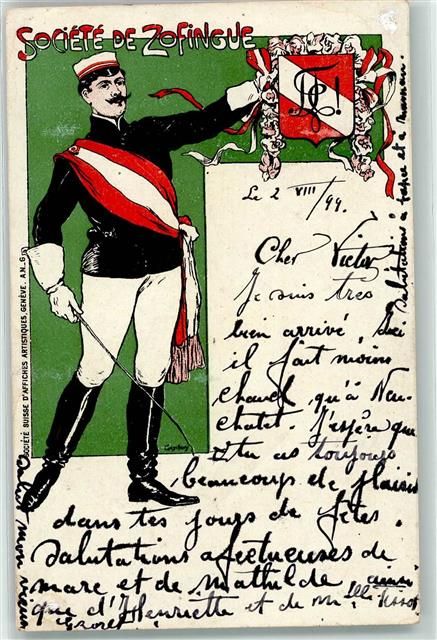 SOCIÉTÉ DE ZOFINGUE
Le 2 VIII/99.
Cher Victor
Je suis très
bien arrivé, ici
il fait moins
chaud qu'à Neu-
chatel. J'espère que
tu as toujours
beaucoup de plaisir
dans tes jours de fêtes.
Salutations affectueuses de
marc et de Mathilde ainsi
que d'Henriette et de Mlle
Salutations à papa et à maman.
Salut mon vieux
SOCIÉTÉ SUISSE D'AFFICHES ARTISTIQUES, GENÈVE. A.N_G